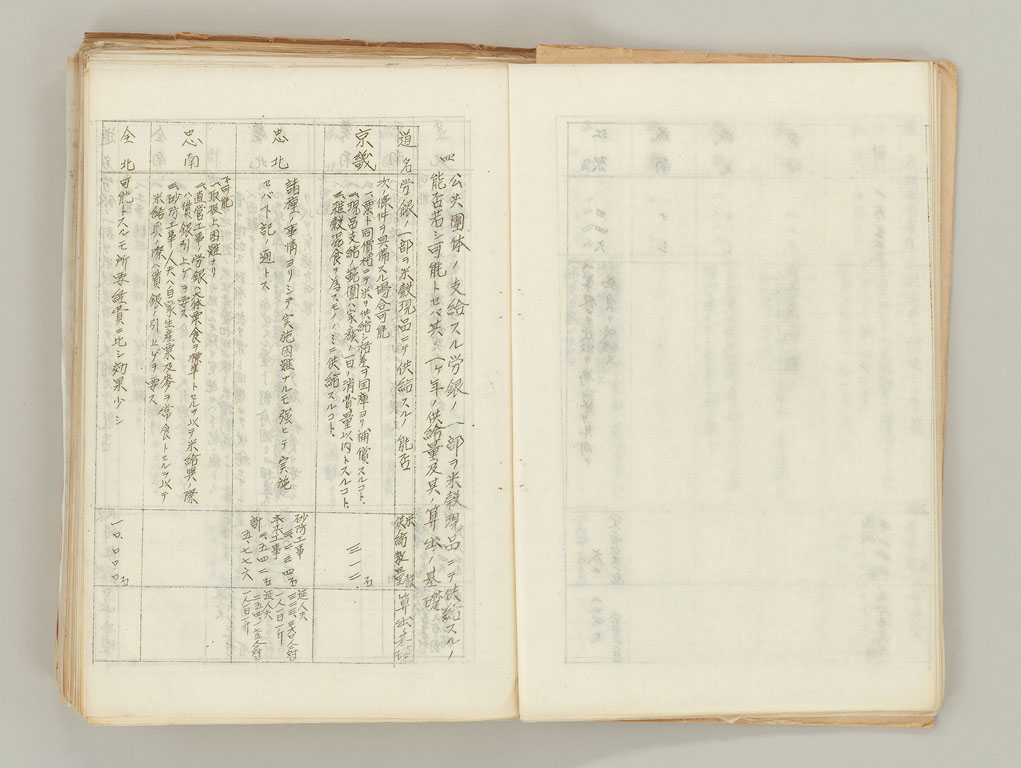 四 公共團体ノ支給スル労銀ノ一部ヲ米穀現品ニテ供給スルノ
能否若シ可能トセバ共ノ一ケ年ノ供給量及其ノ算出ノ基礎
道名
労銀ノ一部ヲ米穀現品ニテ供給スルノ能否
米穀
算出基礎
京畿
次ノ條件ヲ具備スル場合可能
一、粟ト同價格ニテ米ヲ供給シ格差ヲ国庫ヨリ補償スルコト、
二、現品支給ノ範圍ハ家族ノ一日ノ消費量以内トスルコト、
三、雑穀混食ヲ為スモノノミニ供給スルコト、
三一二、石
忠北
諸種ノ事情ヨリシテ実施困難ナルモ强ヒテ実施
セバ下記ノ通トス
砂防工事
土木工事
計
五、七七六
延人夫
延人夫
忠南
不可能
一、取扱上困難ナリ
二、直営工事ノ労銀ハ大体粟食ヲ標準トセルヲ以テ米給與ノ際
ハ賃銀引上ゲヲ要ス
三、砂防工事ノ人夫ハ自家生産粟及麥ヲ常食トセルヲ以テ
米給與ノ際ハ賃銀ノ引上ゲヲ要ス
全北
可能トスルモ所要経費ニ比シ効果少シ
一〇、〇〇〇石